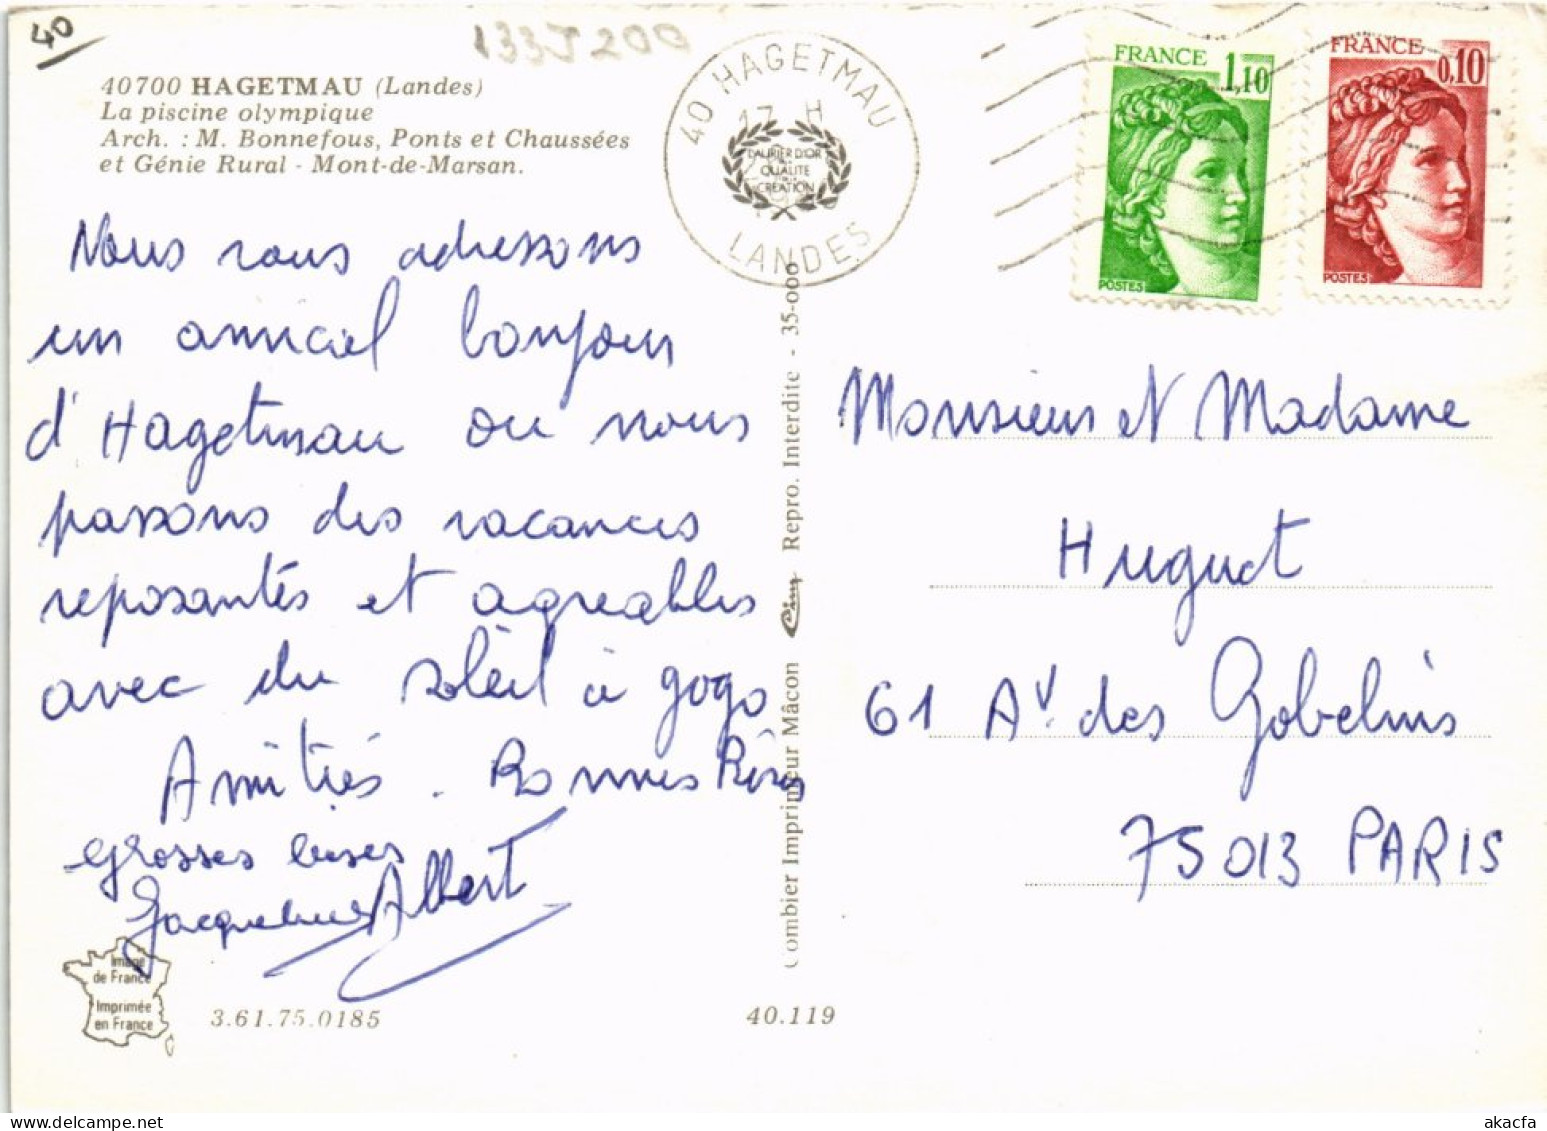 40
133J200
40700 HAGETMAU (Landes)
La piscine olympique
Arch. : M. Bonnefous, Ponts et Chaussées
et Génie Rural - Mont-de-Marsan.
40 HAGETMAU
17 H
LANDES
LAURIER D'OR
DE LA
QUALITE
CREATION
FRANCE
1,10
POSTES
FRANCE
0,10
POSTES
Nous vous adressons
un amical bonjour
d'Hagetmau ou nous
passons des vacances
reposantes et agreables
avec du soleil à gogo
Amitiés. Bonnes Bises
Grosses bises
Jacqueline Albert
Monsieur et Madame
Huguet
61 Av. des Gobelins
75013 PARIS
Combier Imprimeur Mâcon Cim Repro. Interdite - 35-000
Image
de France
Imprimée
en France
3.61.75.0185
40.119
akacfa-delcampe.net
akacfa